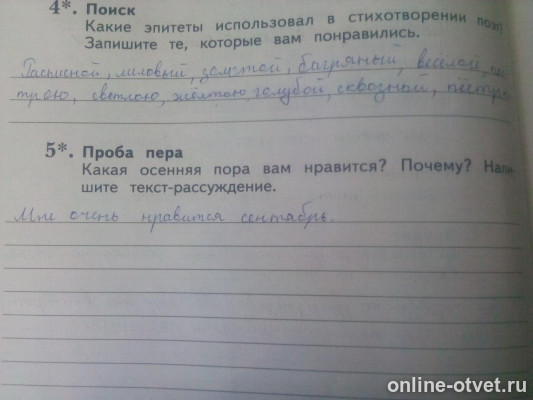 4*. Поиск
Какие эпитеты использовал в стихотворении поэт
Запишите те, которые вам понравились.
Расписной, лиловый, золотой, багряный, весёлой, пё
трою, светлою, жёлтою, голубой, сквозной, пёстро
5*. Проба пера
Какая осенняя пора вам нравится? Почему? Напи-
шите текст-рассуждение.
Мне очень нравится сентябрь.
online-otvet.ru